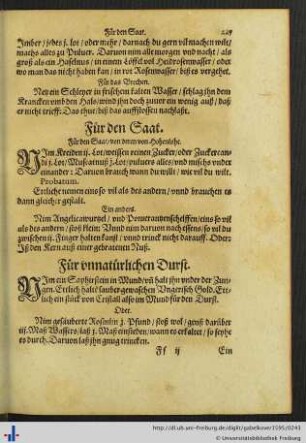 Für den Saat. 229
Imber / jedes j. lot / oder mehr / darnach du gern vil machen wilt /
machs alles zu Puluer. Daruon nim alle morgen vnd nacht / als
groß als ein Haselnus / in einem Löffel vol Heidrosenwasser / oder
wo man das nicht haben kan / in rot Rosenwasser / biß es vergehet.
Für das Brechen.
Netz ein Schleyer in frischem kalten Wasser / schlag jhn dem
Krancken vmb den Hals / wind jhn doch zuuor ein wenig auß / daß
er nicht trieff. Das thut / biß das auffstossen nachlaßt.
Für den Saat.
Für den Saat / von deren von Hohenlohe.
NIm Kreiden ij. Lot / weissen reinen Zucker / oder Zuckercan-
di j. Lot / Muscatnuß j. Lot / puluers alles / vnd mischs vnder
einander: Daruon brauch wann du wilt / wie vil du wilt.
Probatum.
Etliche nemen eins so vil als des andern / vnnd brauchen es
dann gleicher gestalt.
Ein anders.
Nim Angelicawurtzel / vnd Pomerantzenschelffen / eins so vil
als des andern / stoß klein: Vnnd nim daruon nach essens / so vil du
zwischen ij. Finger halten kanst / vnnd trinck nicht darauff. Oder:
Iß den Kern auß einer gebratenen Nuß.
Für vnnatürlichen Durst.
NIm ein Saphirstein in Mund / vñ halt jhn vnder der Zun-
gen. Etlich halten sauber gewaschen Vngerisch Gold. Et-
lich ein stück von Cristall also im Mund für den Durst.
Oder.
Nim gesäuberte Rosinlin j. Pfund / stoß wol / geuß darüber
iij. Maß Wassers / laß j. Maß einsieden / wann es erkaltet / so seyhe
es durch. Daruon laß jhn gnug trincken.
Ff ij Ein
http://dl.ub.uni-freiburg.de/diglit/gabelkover1595/0243
© Universitätsbibliothek Freiburg